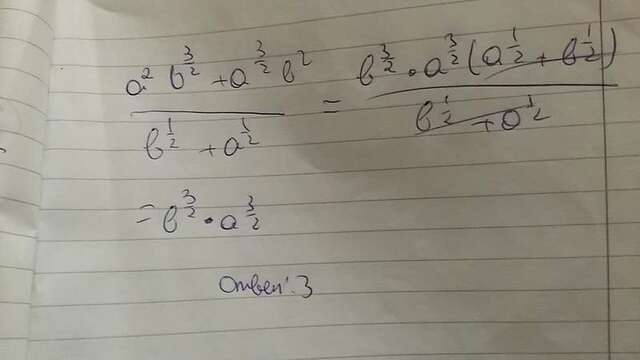 (a² b^(3/2) + a^(3/2) b²) / (b^(1/2) + a^(1/2)) = (b^(3/2) · a^(3/2) (a^(1/2) + b^(1/2))) / (b^(1/2) + a^(1/2))
= b^(3/2) · a^(3/2)
Ответ: 3